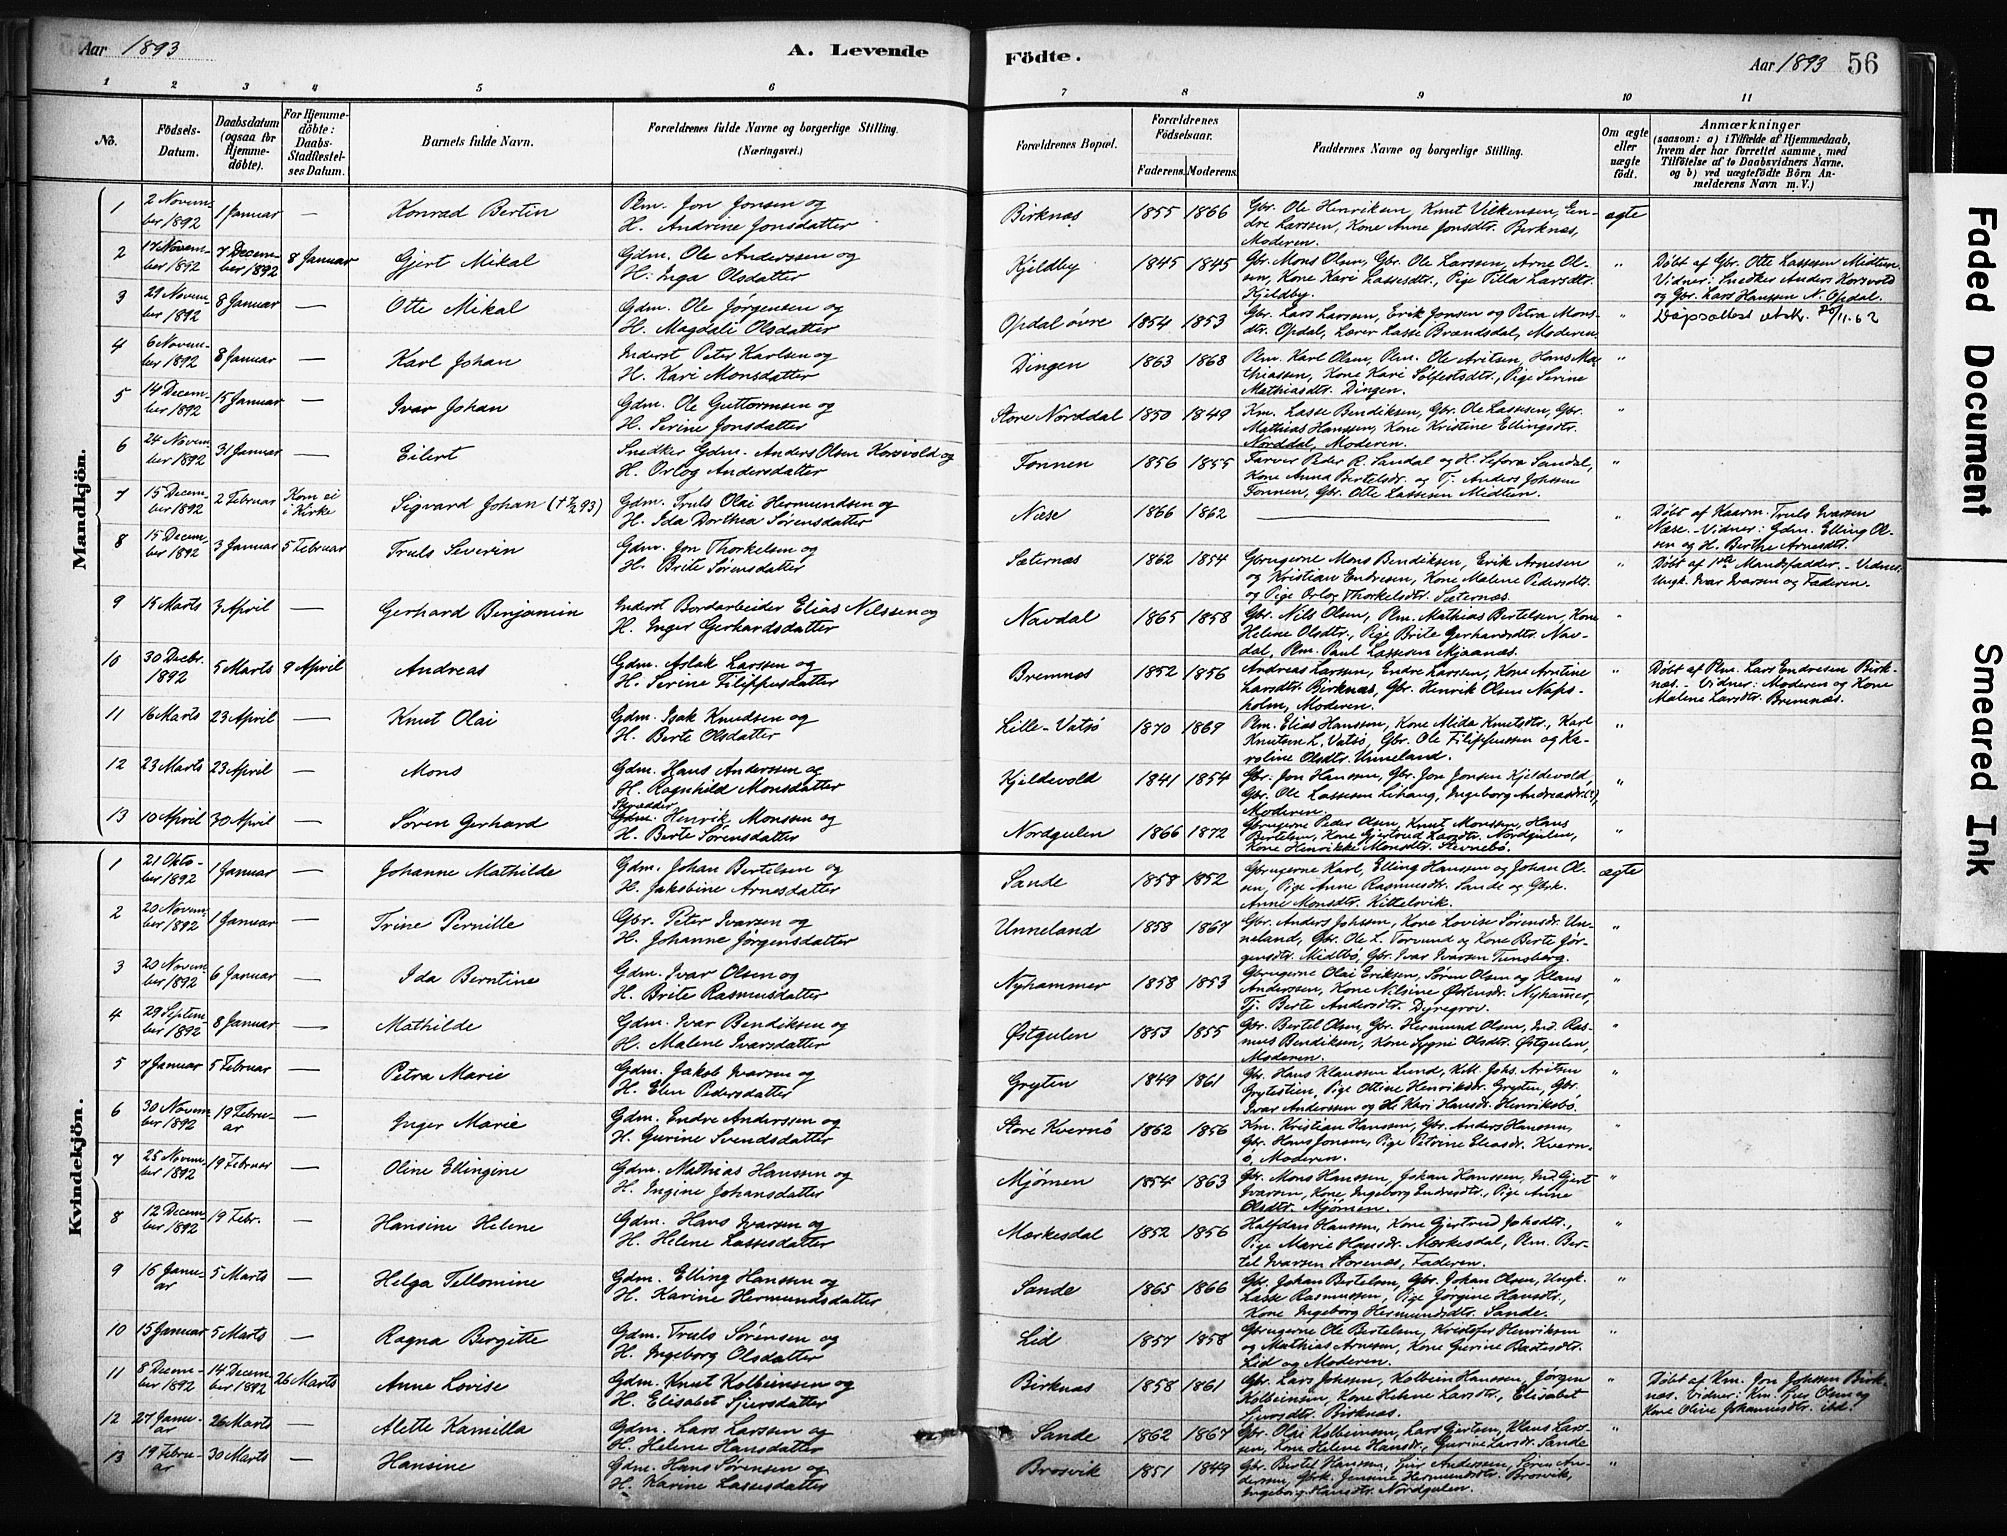 Aar 1893
A. Levende
Födte.
Aar 1893 56
1 2 3 4 5 6 7 8 9 10 11
No.
Födsels-Datum.
Daabsdatum (ogsaa för Hjemme-döbte).
For Hjemme-döbte: Daabs-Stadfæstel-ses Datum.
Barnets fulde Navn.
Forældrenes fulde Navne og borgerlige Stilling. (Næringsvei.)
Forældrenes Bopæl.
Forældrenes Födselsaar. Faderens. Moderens.
Faddernes Navne og borgerlige Stilling.
Om ægte eller uægte födt.
Anmærkninger
(saasom: a) i Tilfælde af Hjemmedaab, hvem der har forrettet samme, med Tilföielse af to Daabsvidners Navne, og b) ved uægtefödte Börn An-melderens Navn m. V.)
Mandkjön.
1 2 Novem-ber 1892 1 Januar — Konrad Bertin Plm. Jon Jonsen og H. Andrine Jonsdatter Birknæs 1855 1866 Gbr. Ole Henriksen, Knut Vilkensen, En-dre Larssen, Kone Anne Jonsdtr. Birknæs, Moderen. ægte
2 17 Novem-ber 1892 7 Decem-ber 1892 8 Januar Gjert Mikal Gdm. Ole Anderssen og H. Inga Olsdatter Kjeldby 1845 1845 Gbr. Mons Olsen, Gbr. Ole Larssen, Arne Ol-sen, Kone Kari Lassesdtr, Pige Tilla Larsdtr. Kjeldby. " Døbt af Gbr. Otte Lassesen Midtun. Vidner: Snedker Anders Korsvold og Gbr. Lars Hanssen N. Opdal.
3 29 Novem-ber 1892 8 Januar — Otte Mikal Gdm. Ole Jørgensen og H. Magdali Olsdatter Opdal øvre 1854 1853 Gbr. Lars Larssen, Erik Jonsen og Petra Mons-dtr. Opdal, Lærer Lasse Brandsdal, Moderen. " Dåpsattest utsk. 20/11.62
4 6 Novem-ber 1892 8 Januar — Karl Johan Inderst Peter Karlsen og H. Kari Monsdatter Dingen 1863 1868 Plm. Karl Olsen, Plm. Ole Aritsen, Hans Ma-thiassen, Kone Kari Sølfestsdtr., Pige Serine Mathiasdtr. Dingen. "
5 14 Decem-ber 1892 15 Januar — Ivar Johan Gdm. Ole Guttormsen og H. Serine Jonsdatter Store Norddal 1850 1849 Km. Lasse Bendiksen, Gbr. Ole Lassesen, Gbr. Mathias Hanssen, Kone Kristine Ellingsdtr. Norddal, Moderen. "
6 24 Novem-ber 1892 31 Januar — Eilert Snedker Gdm. Anders Olsen Korsvold og H. Orlog Andersdatter Fonnen 1856 1855 Farver Peder R. Sandal og H. Sefora Sandal, Kone Anna Bertelsdr og Tj. Anders Johssen Fonnen, Gbr. Otte Lassesen Midtun. "
7 15 Decem-ber 1892 2 Februar Kom ei i Kirke Sigvard Johan († 7/2 93) Gdm. Truls Olai Hermundsen og H. Ida Dorthea Sørensdatter Næse 1866 1862 — " Døbt af Kaarm. Truls Ivarsen Næse. Vidner: Gdm. Elling Ol-sen og H. Berthe Arnesdtr.
8 15 Decem-ber 1892 3 Januar 5 Februar Truls Severin Gdm. Jon Thorkelsen og H. Brite Sørensdatter Sæternæs 1862 1854 Gbrugerne Mons Bendiksen, Erik Arnesen og Kristian Endresen, Kone Malene Pedersdtr. og Pige Orlog Thorkelsdtr. Sæternæs. " Døbt af 1ste Mandsfadder. Vidner: Ungk. Ivar Ivarsen og Faderen.
9 15 Marts 3 April — Gerhard Benjamin Inderst Bordarbeider Elias Nilssen og H. Inger Gerhardsdatter Navdal 1865 1858 Gbr. Nils Olsen, Plm. Mathias Bertelsen, Kone Helene Olsdtr., Pige Brite Gerhardsdtr. Nav-dal, Plm. Paul Lassesen Mjaanæs. "
10 30 Decbr. 1892 5 Marts 9 April Andreas Gdm. Aslak Larssen og H. Serine Filippusdatter Bremnæs 1852 1856 Andreas Larssen, Endre Larssen, Kone Arntine Larsdtr. Birknæs, Gbr. Henrik Olsen Naps-holm, Moderen. " Døbt af Plm. Lars Endresen Birk-næs. Vidner: Moderen og Kone Malene Larsdtr. Bremnæs.
11 16 Marts 23 April — Knut Olai Gdm. Isak Knudsen og H. Berte Olsdatter Lille-Vatsø 1870 1869 Plm. Elias Hanssen, Kone Alida Knutsdtr., Karl Knutsen L. Vatsø, Gbr. Ole Filippussen og Ka-roline Olsdtr. Unneland. "
12 23 Marts 23 April — Mons Gdm. Hans Anderssen og H. Ragnhild Monsdatter Kjeldevold 1841 1854 Gbr. Jon Hanssen, Gbr. Jon Jonsen Kjeldevold, Gbr. Ole Lassesen Lihaug, Ingeborg Andreasdr. Moderen. "
13 10 April 30 April — Søren Gerhard Skrædder Gdm. Henrik Monssen og H. Berte Sørensdatter Nordgulen 1866 1872 Gbrugerne Peder Olsen, Knut Monssen, Hans Bertelsen, Kone Gjertrud Larsdtr. Nordgulen, Kone Henrikke Monsdtr. Stevnebø. "
Kvindekjön.
1 21 Okto-ber 1892 1 Januar — Johanne Mathilde Gdm. Johan Bertelsen og H. Jakobine Arnesdatter Sande 1858 1852 Gbrugerne Karl, Elling Hanssen og Johan Ol-sen, Pige Anne Rasmusdtr. Sande og Gbrk. Anne Monsdtr. Kittelsvik. ægte
2 20 Novem-ber 1892 1 Januar — Trine Pernille Gbr. Peter Ivarsen og H. Johanne Jørgensdatter Unneland 1858 1867 Gbr. Anders Johssen, Kone Lovise Sørensdr. Un-neland, Gbr. Ole L. Torvund og Kone Berte Jør-gensdtr. Midtbø, Gbr. Ivar Ivarsen Tunsberg. "
3 20 Novem-ber 1892 6 Januar — Ida Berntine Gdm. Ivar Olsen og H. Brite Rasmusdatter Nyhammer 1858 1853 Gbrugerne Olai Eriksen, Søren Olsen og Klaus Anderssen, Kone Nilsine Østensdr. Nyhamer, Tj. Berte Andersdtr. Dyregrov. "
4 29 Septem-ber 1892 8 Januar — Mathilde Gdm. Ivar Bendiksen og H. Malene Ivarsdatter Østgulen 1853 1855 Gbr. Bertel Olsen, Gbr. Hermund Olsen, Ind. Ras-mus Bendiksen, Kone Sygni Olsdtr. Østgulen, Moderen. "
5 7 Januar 5 Februar — Petra Marie Gdm. Jakob Ivarsen og H. Elen Pedersdatter Gryten 1849 1861 Gbr. Hans Klaussen Lund, Joh. Aritsen Grytestien, Pige Ottine Henriksdr. Gryten, Gbr. Ivar Anderssen og H. Kari Hansdr. Henriksbø. "
6 30 Novem-ber 1892 19 Febru-ar — Inger Marie Gdm. Endre Anderssen og H. Gurine Svendsdatter Store Kvernø 1862 1856 Km. Kristian Hanssen, Gbr. Anders Hanssen, Gbr. Hans Jonsen, Pige Petrine Eliasdr. Kvern-ø, Moderen. "
7 25 Novem-ber 1892 19 Februar — Oline Ellingine Gdm. Mathias Hanssen og H. Ingine Johansdatter Mjømen 1854 1863 Gbr. Mons Hanssen, Johan Hanssen, Ind. Gjert Ivarsen, Kone Ingeborg Endresdtr., Pige Anne Olsdtr. Mjømen. "
8 12 Decem-ber 1892 19 Febr. — Hansine Helene Gdm. Hans Ivarsen og H. Helene Lassesdatter Mærkesdal 1852 1856 Halfdan Hanssen, Kone Gjertrud Johsdtr., Pige Marie Hansdr. Mærkesdal, Plm. Ber-tel Ivarsen Storenæs, Faderen. "
9 16 Janu-ar 5 Marts — Helga Tellomine Gdm. Elling Hanssen og H. Karine Hermundsdatter Sande 1865 1866 Gbr. Johan Bertelsen, Gbr. Johan Olsen, Ungk. Lasse Rasmussen, Pige Jørgine Hansdtr., Kone Ingeborg Hermundsdtr. Sande. "
10 15 Januar 5 Marts — Ragna Birgitte Gdm. Truls Sørensen og H. Ingeborg Olsdatter Lid 1857 1858 Gbrugerne Ole Bertelsen, Kristofer Henriksen og Mathias Arnesen, Kone Gurine Lid og Moderen. "
11 8 Decem-ber 1892 14 Decem-ber 1892 26 Marts Anne Lovise Gdm. Knut Kolbeinsen og H. Elisabet Sjursdatter Birknæs 1858 1861 Gbr. Lars Johssen, Kolbein Hanssen, Jørgen Kolbeinsen, Kone Helene Larsdtr., Elisabet Sjursdtr. Birknæs. " Døbt af Km. Jon Johssen Birk-næs. Vidner: Km. Sjur Olsen og Kone Olive Johannesdtr. ibd.
12 27 Janu-ar 26 Marts — Alette Kamilla Gdm. Lars Larssen og H. Helene Hansdatter Sande 1862 1867 Gbr. Olai Kolbeinsen, Lars Gjertsen, Klaus Lars-sen, Kone Helene Hansdr., Gurine Larsdr. Sande "
13 19 Febru-ar 30 Marts — Hansine Gdm. Hans Sørensen og H. Karine Lassesdatter Brosvik 1851 1849 Gbr. Bertel Hanssen, Sjur Anderssen, Søren An-derssen, Gbrk. Jensine Hermundsdtr. Brosvik, Ingeborg Hansdtr. Nordgulen. "
Faded Document
Smeared Ink